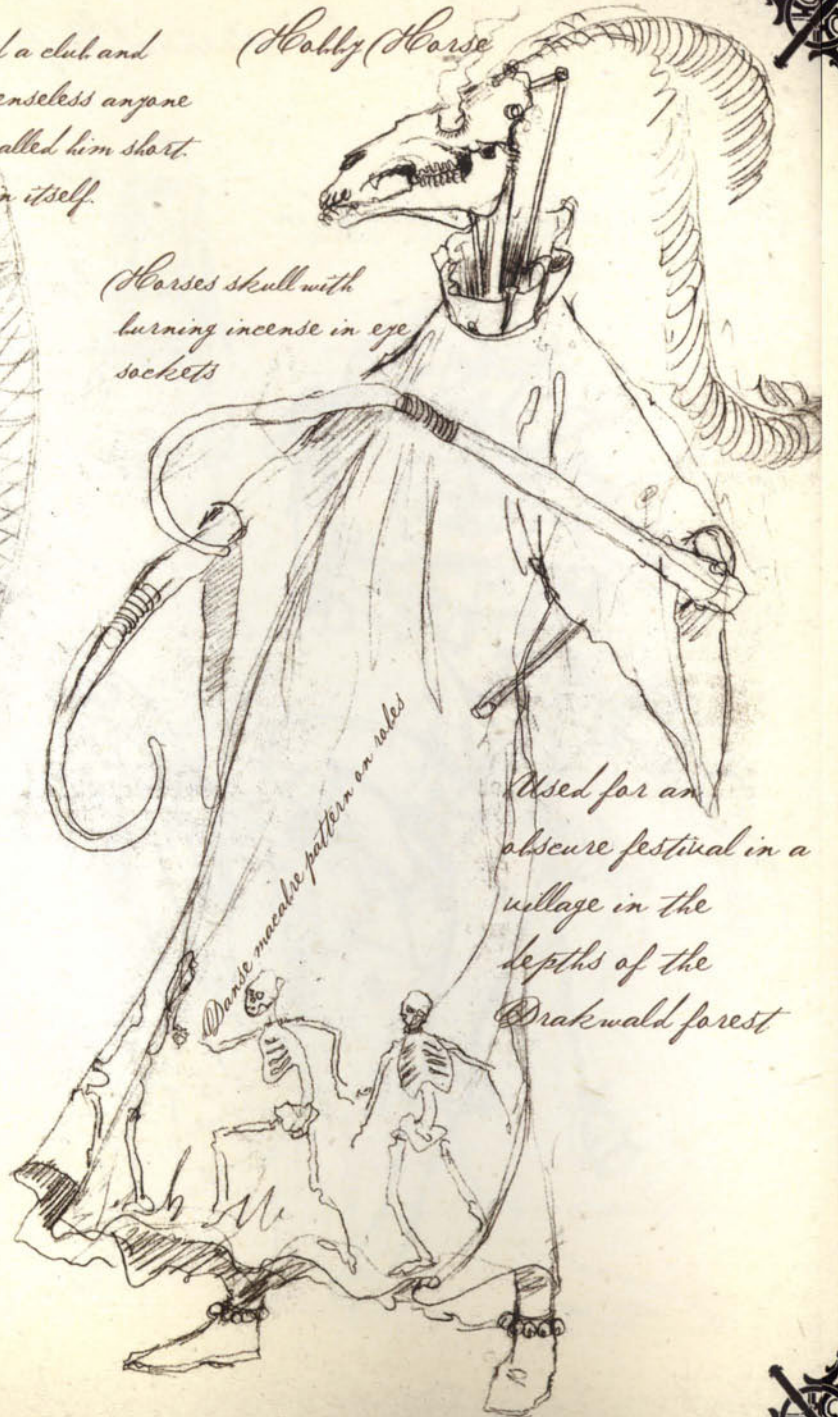 a club and
enseless anyone
alled him short.
n itself.
Hobby Horse
Horses skull with
burning incense in eye
sockets
Danse macabre pattern on robes
Used for an
obscure festival in a
village in the
depths of the
Drakwald forest